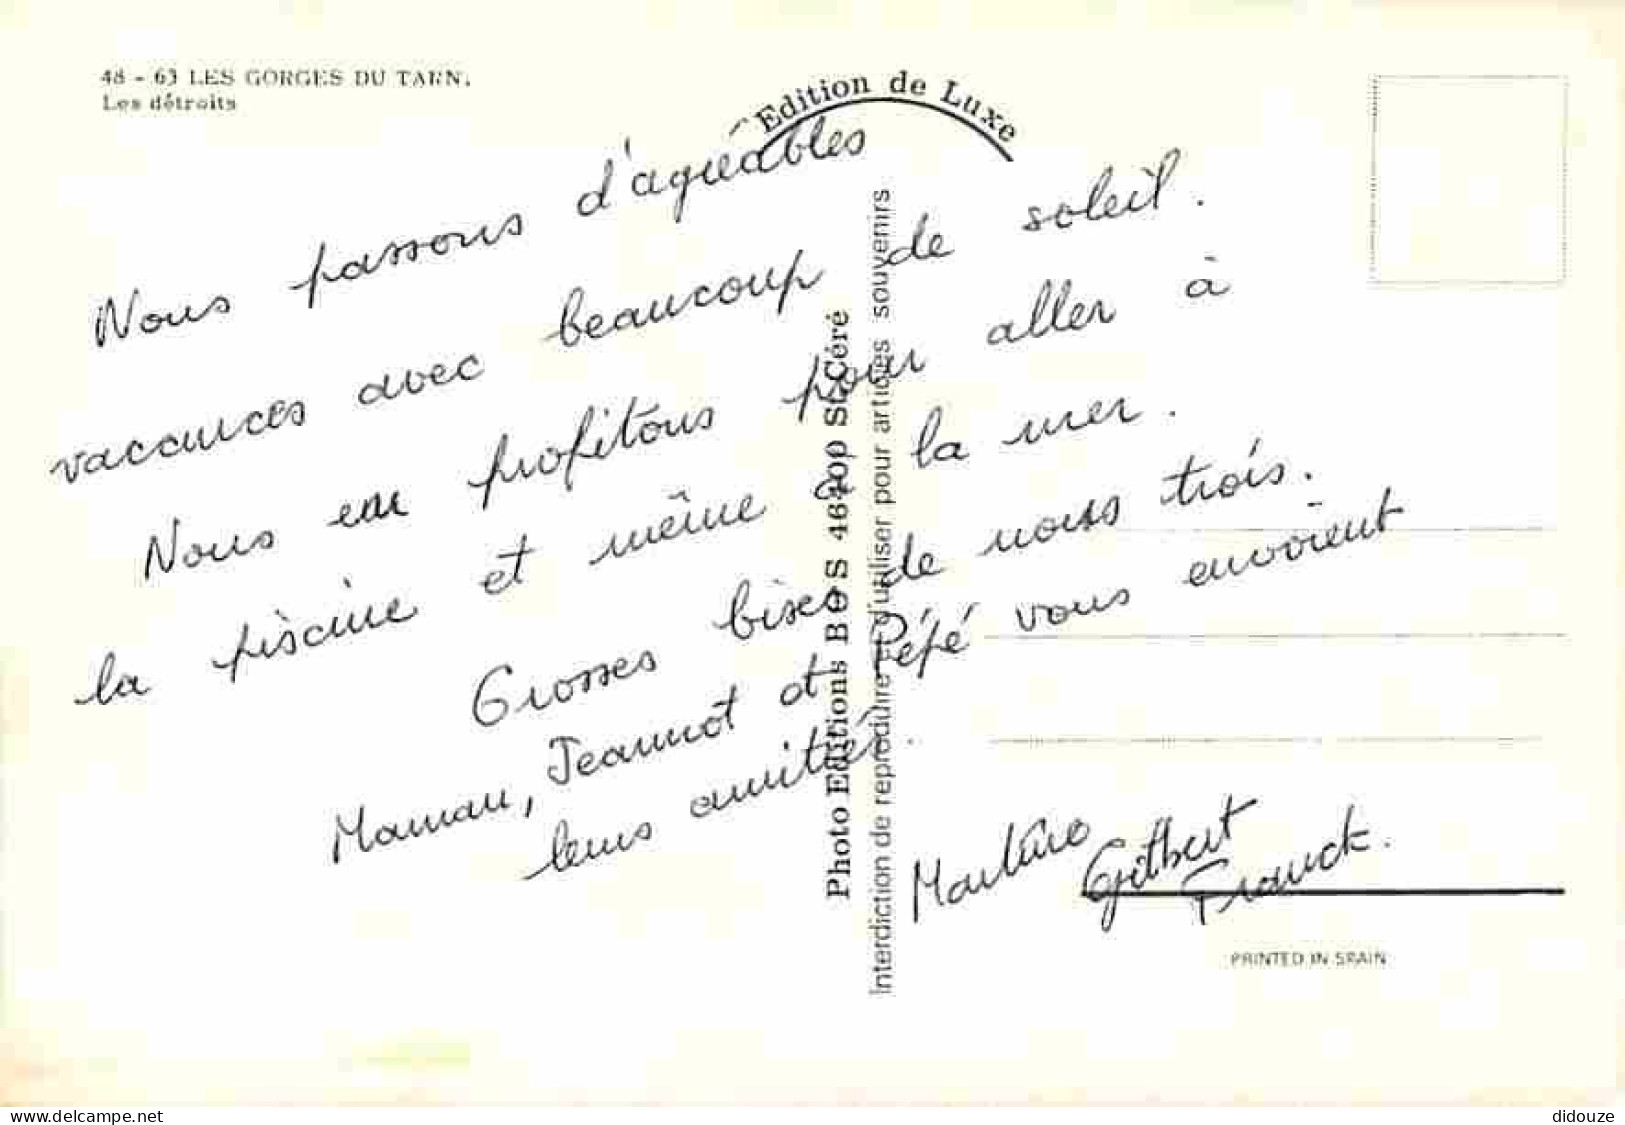 48 - 63 LES GORGES DU TARN.
Les détroits
Edition de Luxe
Nous passons d'agréables
vacances avec beaucoup de soleil.
Nous en profitons pour aller à
la piscine et même à la mer.
Grosses bises de nous trois.
Maman, Jeannot et Pépé vous envoient
leurs amitiés.
Martine
Gilbert
Franck.
Photo Editions BOS 46400 St-Céré
Interdiction de reproduire et d'utiliser pour articles souvenirs
PRINTED IN SPAIN
www.delcampe.net
didouze